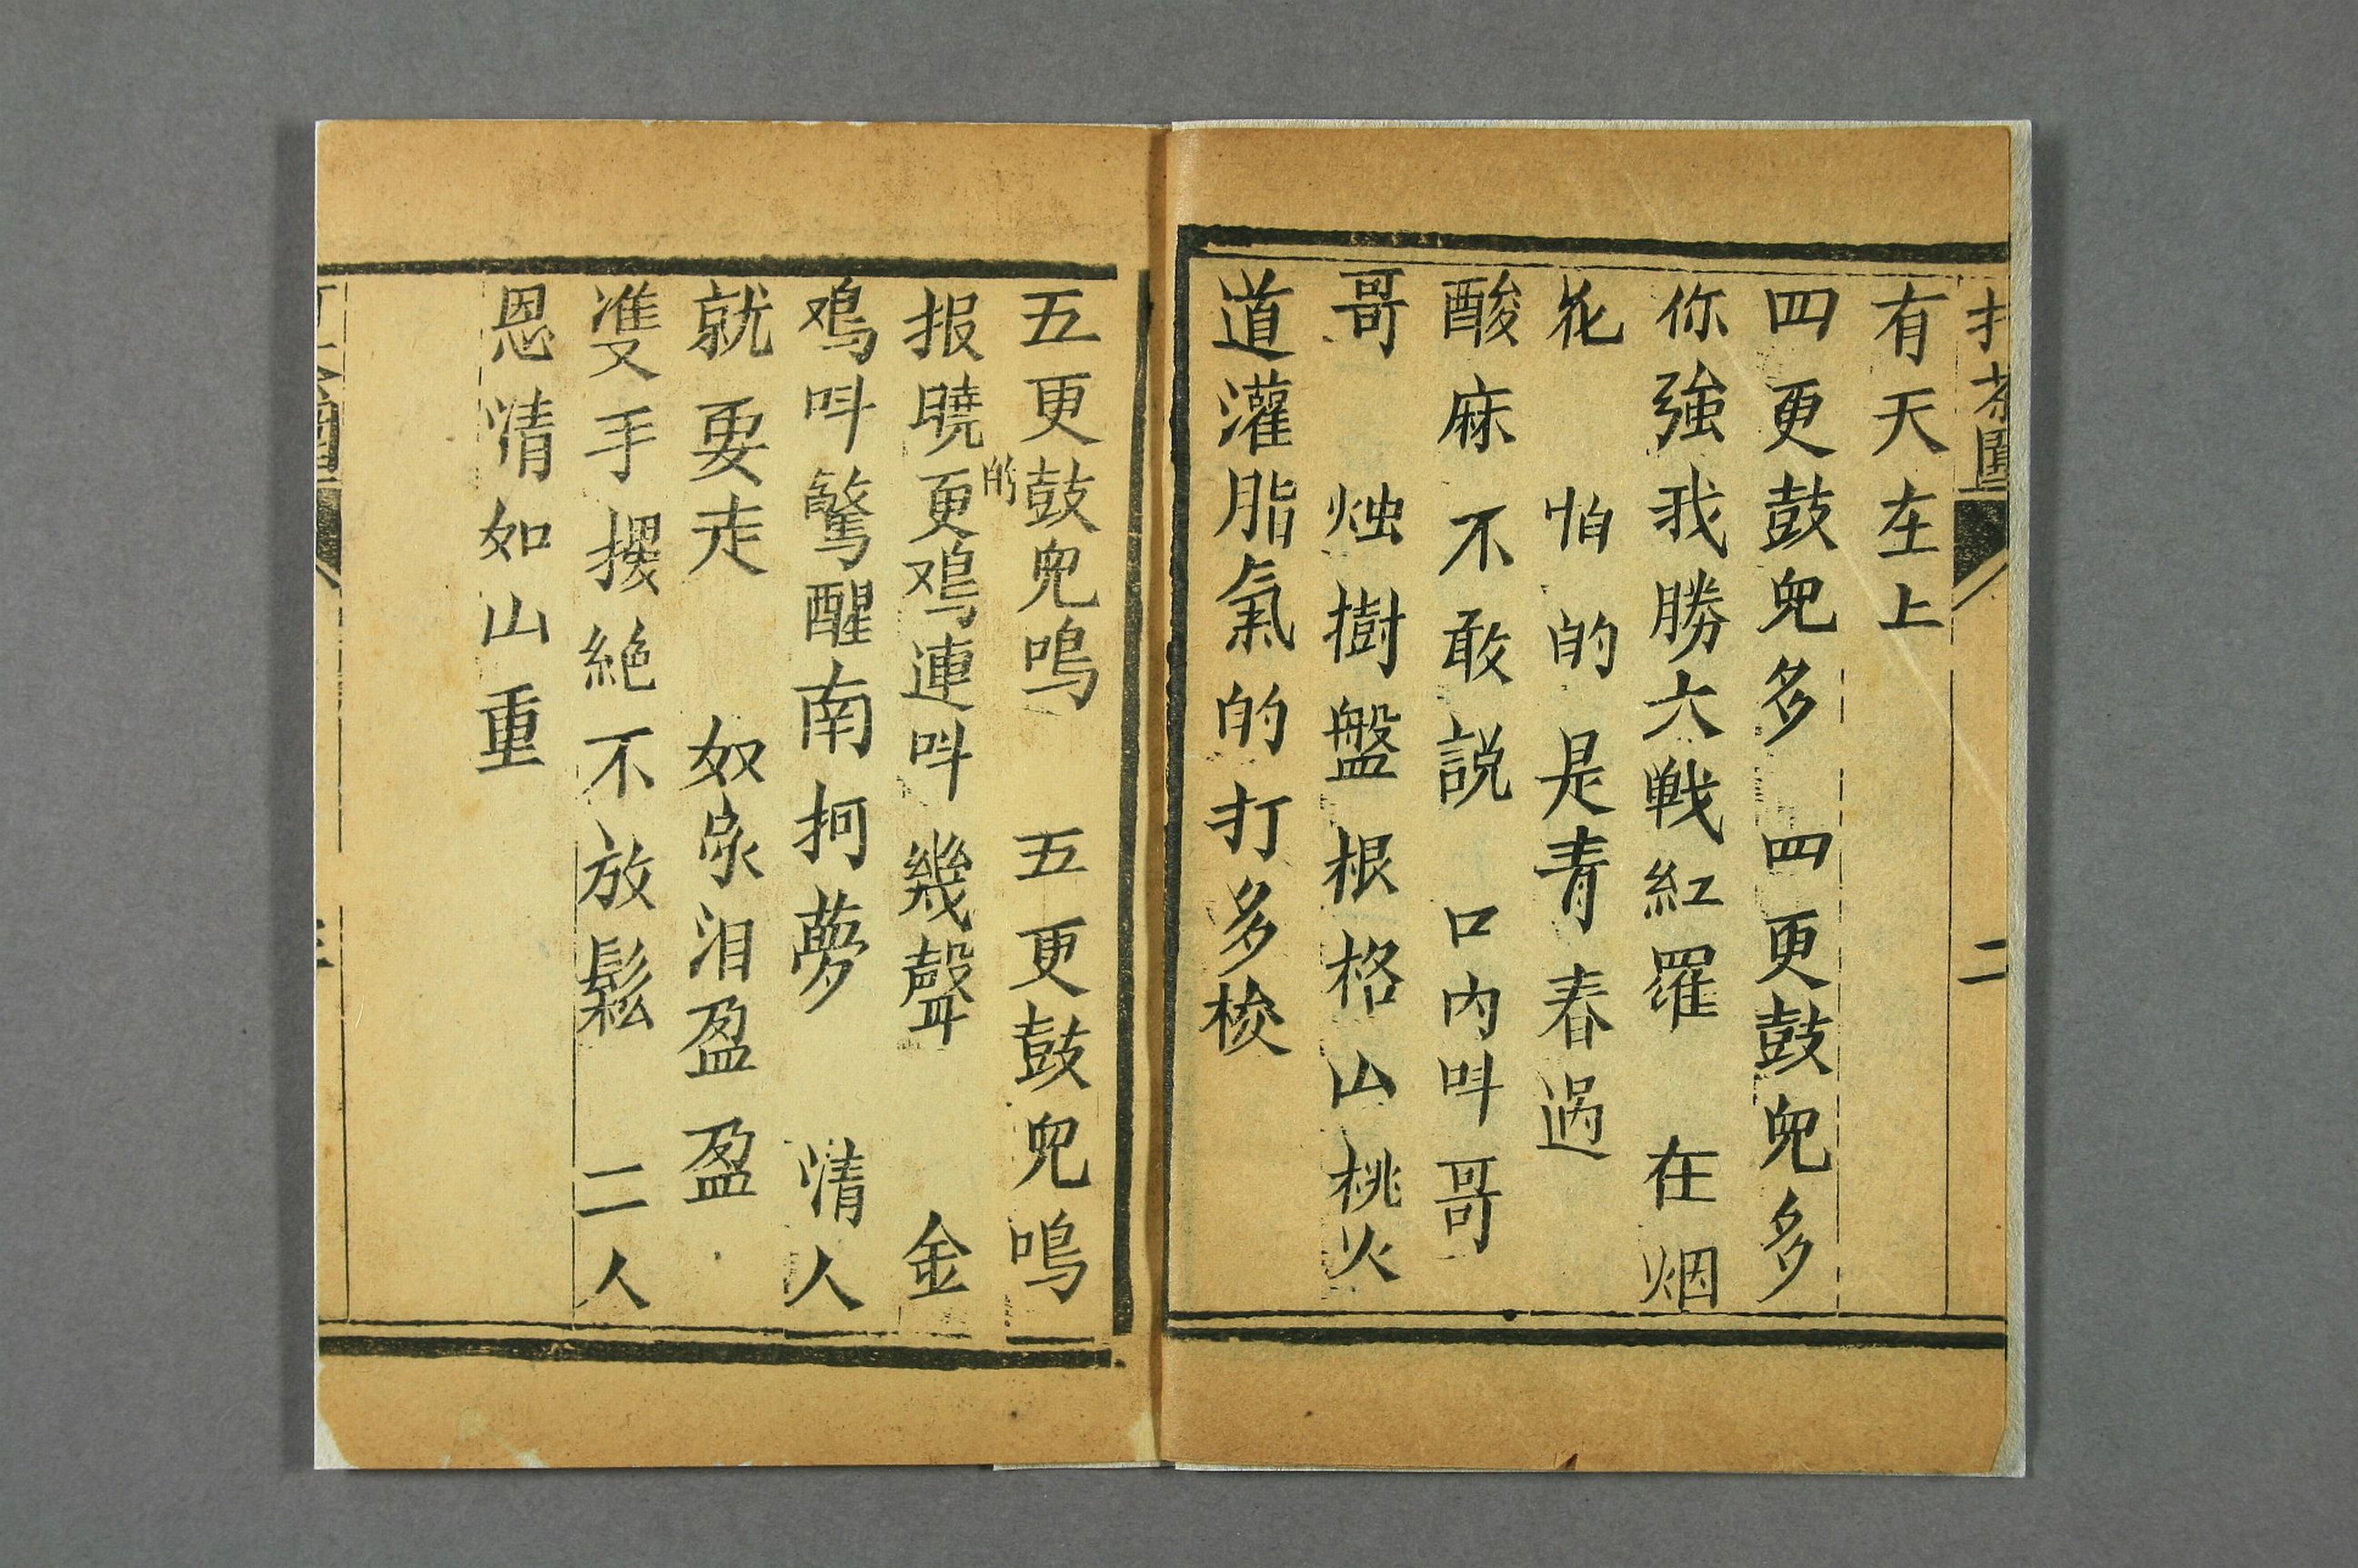 打茶圍
二
有天在上
四更鼓兒多 四更鼓兒多
你強我勝大戦紅羅 在烟
花 怕的是青春過
酸麻不敢説 口内呌哥
哥 烛樹盤根格山桃火
道灌脂氣的打多梭
五更鼓兒鳴 五更鼓兒鳴
报曉的更鸡連呌幾聲 金
鸡呌驚醒南柯夢 情人
就要走 奴家泪盈盈
雙手摟絶不放鬆 二人
恩情如山重